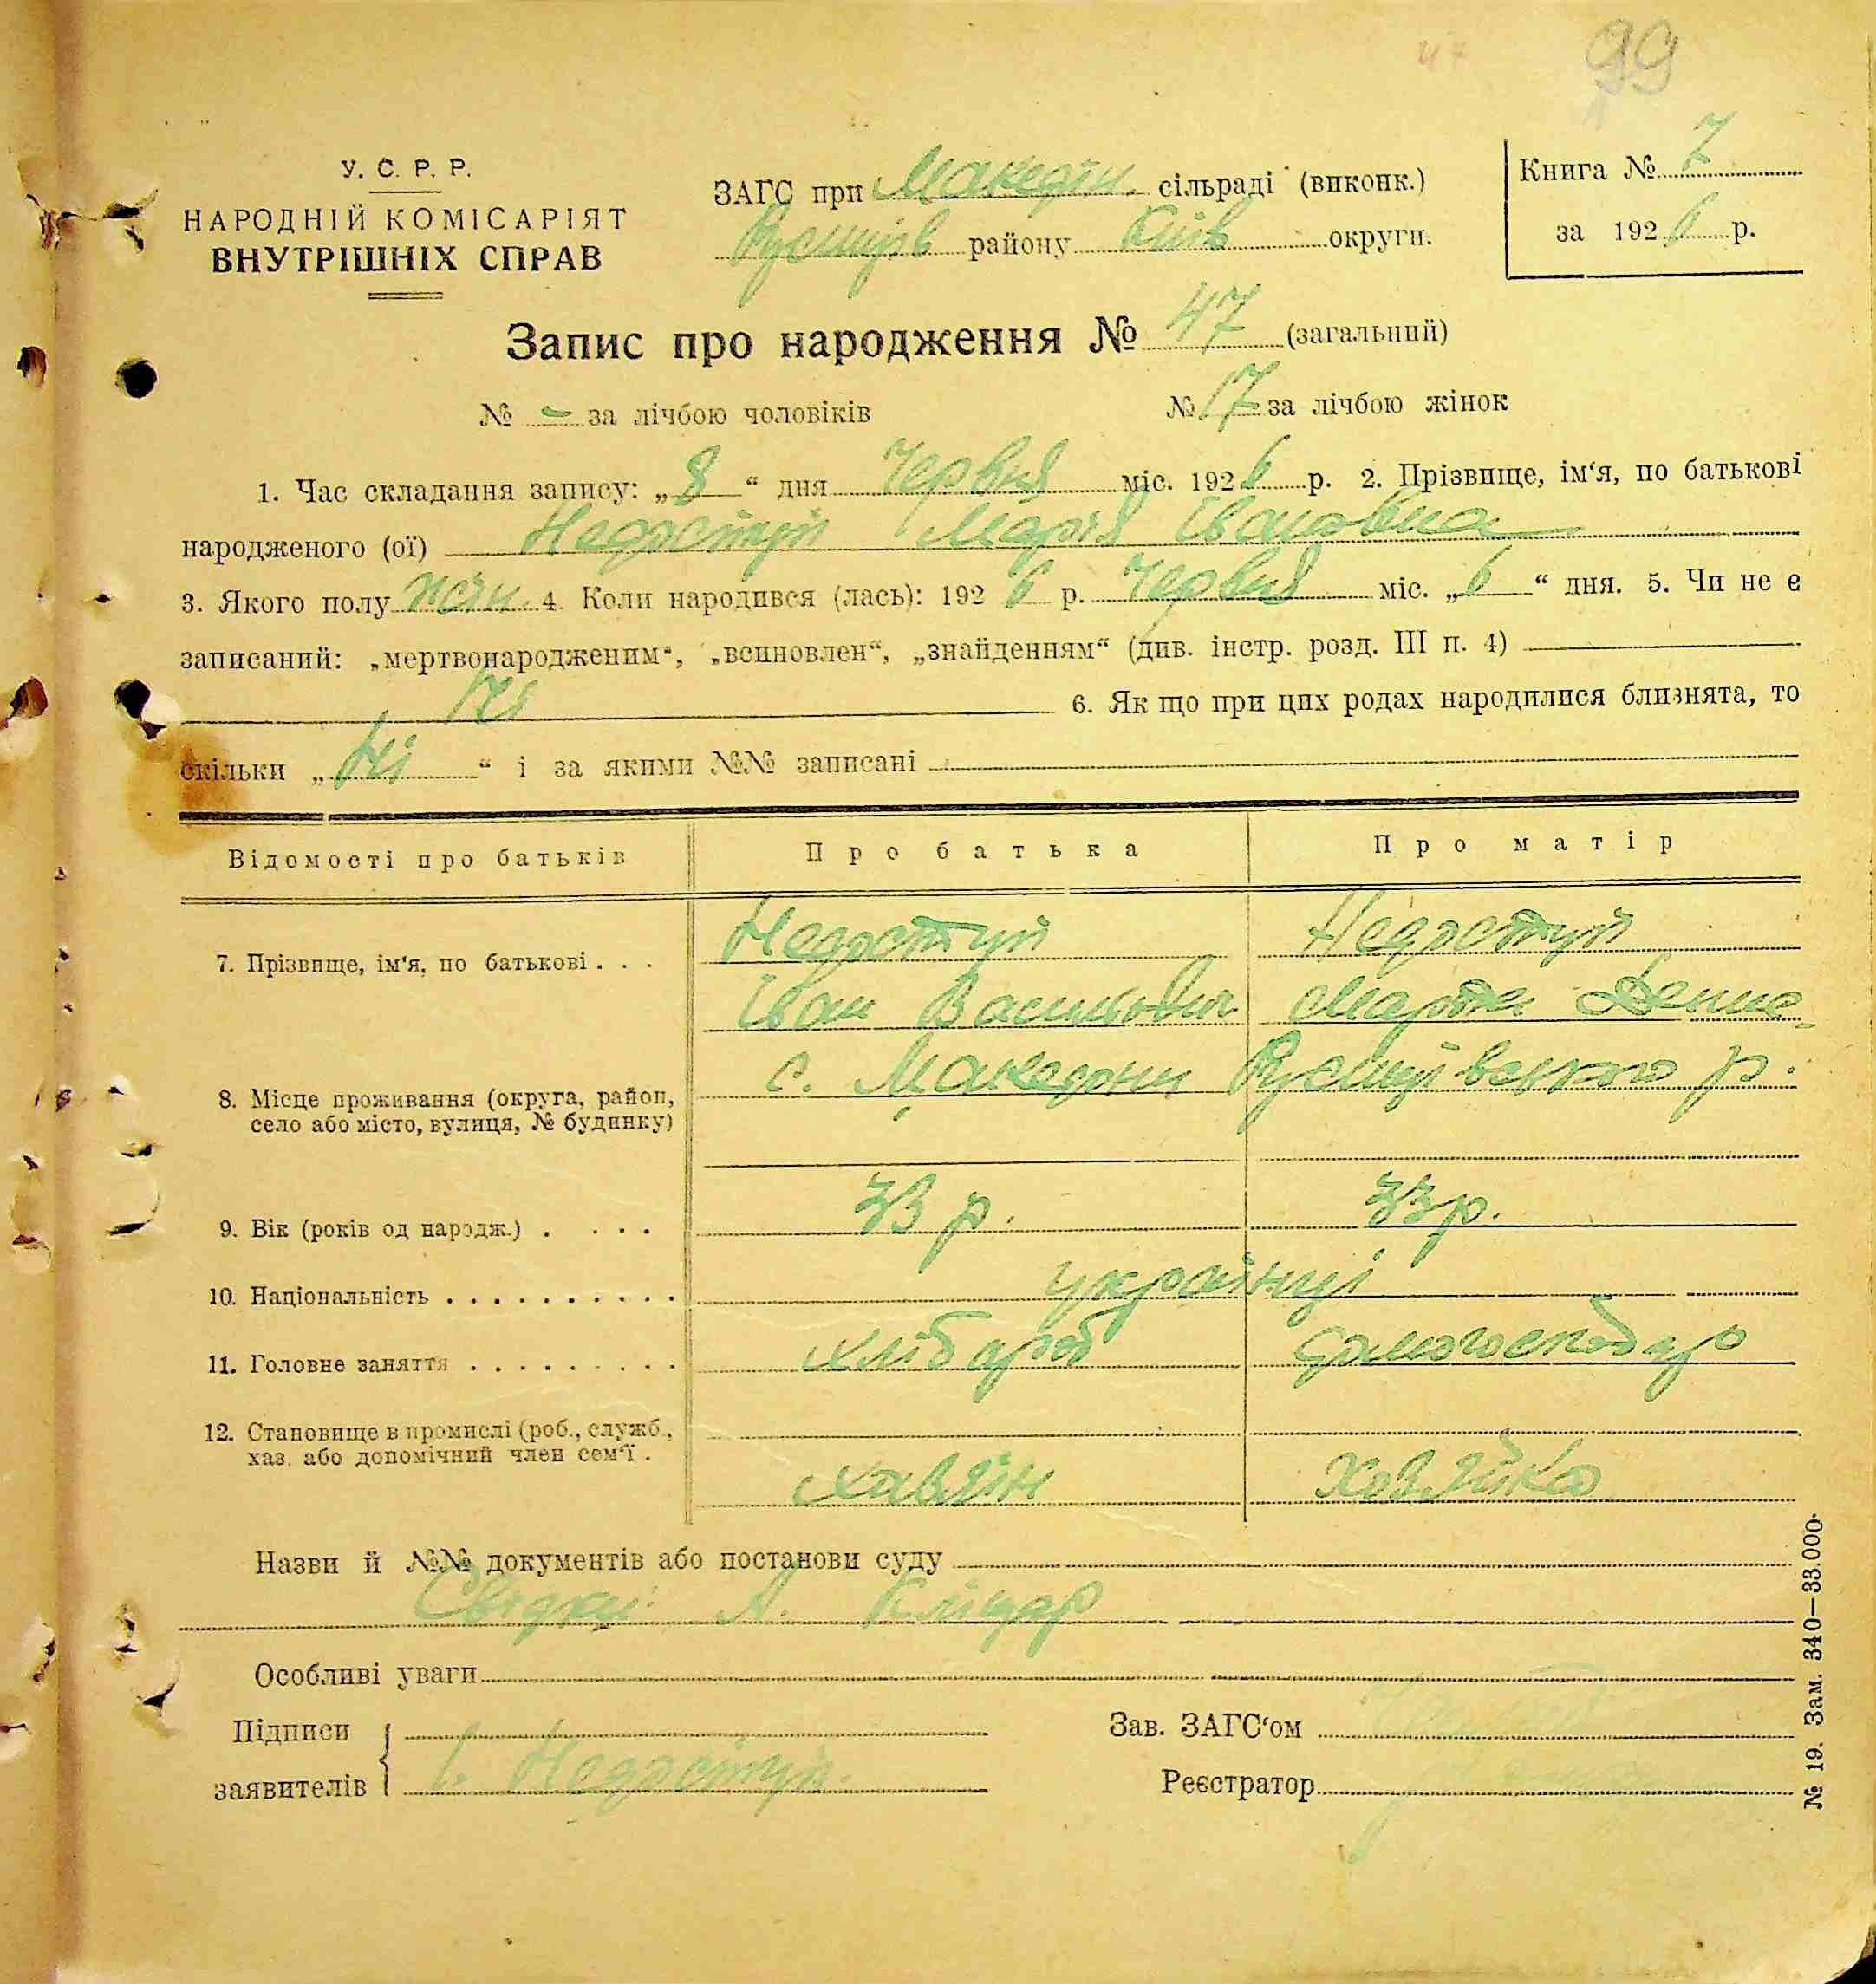 47 99
У. С. Р. Р.
НАРОДНІЙ КОМІСАРІЯТ
ВНУТРІШНІХ СПРАВ
ЗАГС при Македон. сільраді (виконк.)
району Київ округи.
Книга № 7
за 1926 р.
Запис про народження № 47 (загальний)
№ – за лічбою чоловіків № 17 за лічбою жінок
1. Час складання запису: „8“ дня Червня міс. 1926 р. 2. Прізвище, ім‘я, по батькові
народженого (ої) Недоступ Марія Івановна
3. Якого полу жін. 4. Коли народився (лась): 1926 р. Червня міс. „6“ дня. 5. Чи не є
записаний: „мертвонародженим“, „всиновлен“, „знайденням“ (див. інстр. розд. III п. 4)
Ні 6. Як що при цих родах народилися близнята, то
скільки „Ні“ і за якими №№ записані
Відомості про батьків Про батька Про матір
7. Прізвище, ім‘я, по батькові . . . Недоступ Недоступ
Іван Василович Марта Денис.
8. Місце проживання (округа, район,
село або місто, вулиця, № будинку)
с. Македони р.
9. Вік (років од народж.) . . . . 33 р. 33 р.
10. Національність . . . . . . . . . . українці
11. Головне заняття . . . . . . . . . хлібороб домогосподар
12. Становище в промислі (роб., служб.,
хаз. або допомічний член сем‘ї .
хазяїн Хозяйка
Назви й №№ документів або постанови суду
Свідки: А.
Особливі уваги
Підписи
заявителів І. Недоступ
Зав. ЗАГС‘ом
Реєстратор
№ 19. Зам. 340—33.000.